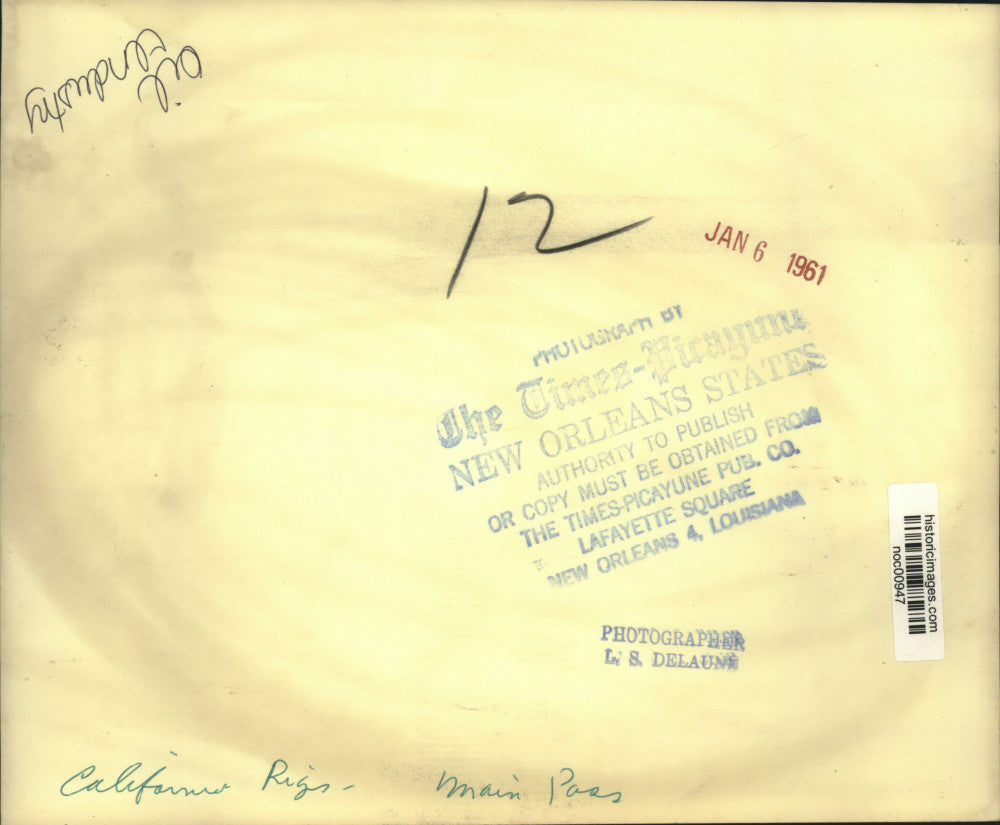 Oil
Industry
12
JAN 6 1961
PHOTOGRAPH BY
The Times-Picayune
NEW ORLEANS STATES
AUTHORITY TO PUBLISH
OR COPY MUST BE OBTAINED FROM
THE TIMES-PICAYUNE PUB. CO.
LAFAYETTE SQUARE
NEW ORLEANS 4, LOUISIANA
historicimages.com
noc00947
PHOTOGRAPHER
L. S. DELAUNE
California Rigs - Main Pass